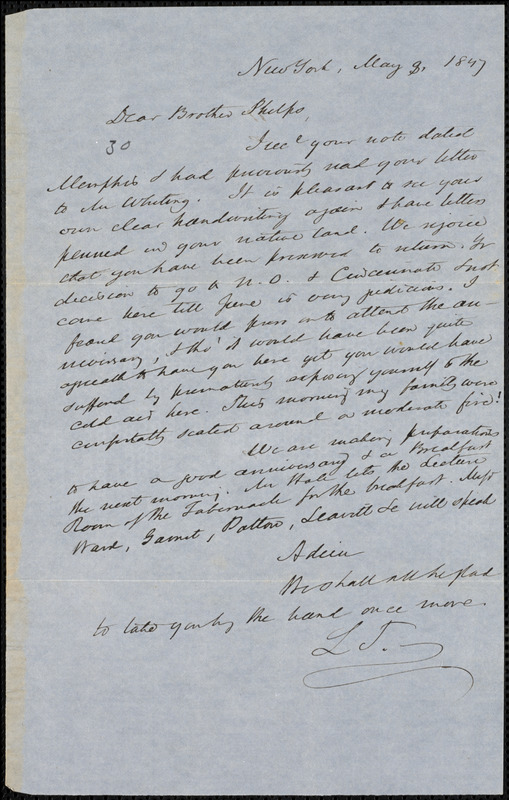 New York, May 8, 1847
Dear Brother Phelps,
30
I recd your note dated
Memphis & had previously read your letter
to Mr Whiting. It is pleasant to see your
own clear handwriting again & have letters
penned in your native land. We rejoice
that you have been preserved to return. Yr
decision to go to N.O. & Cincinnati & not
come here till June is very judicious. I
feared you would press on to attend the an-
niversary, & tho' it would have been quite
agreeable to have you here yet you would have
suffered by prematurely exposing yourself to the
cold air here. This morning my family were
comfortably seated around a moderate fire!
We are making preparations
to have a good anniversary & a Breakfast
the next morning. Mr Hale lets the Lecture
Room of the Tabernacle for the breakfast. Messrs
Ward, Garnet, Patton, Leavitt &c will speak
Adieu
We shall all be glad
to take you by the hand once more.
L T.